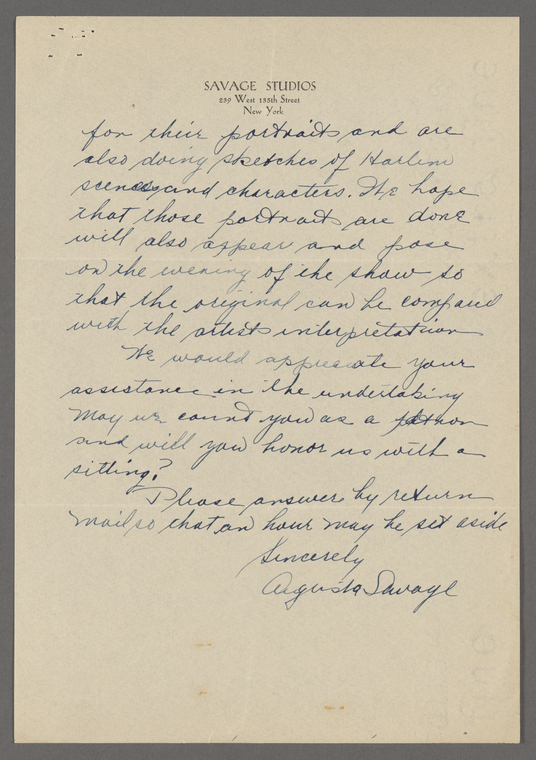 SAVAGE STUDIOS
239 West 135th Street
New York
for their portraits and are
also doing sketches of Harlem
scenes and characters. We hope
that those portraits are done
will also appear and pose
on the evening of the show so
that the original can be compared
with the artists interpretation
We would appreciate your
assistance in the undertaking
May we count you as a
and will you honor us with a
sitting?
Please answer by return
mail so that an hour may be set aside
Sincerely
Augusta Savage